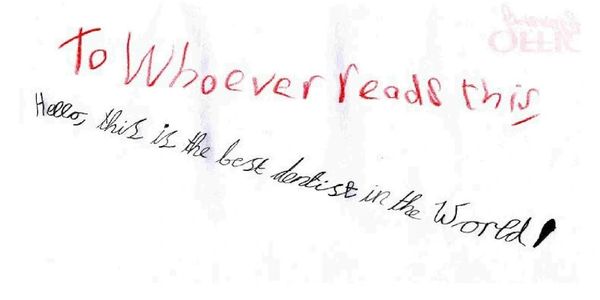 To Whoever reads this
Hello, this is the best dentist in the World!